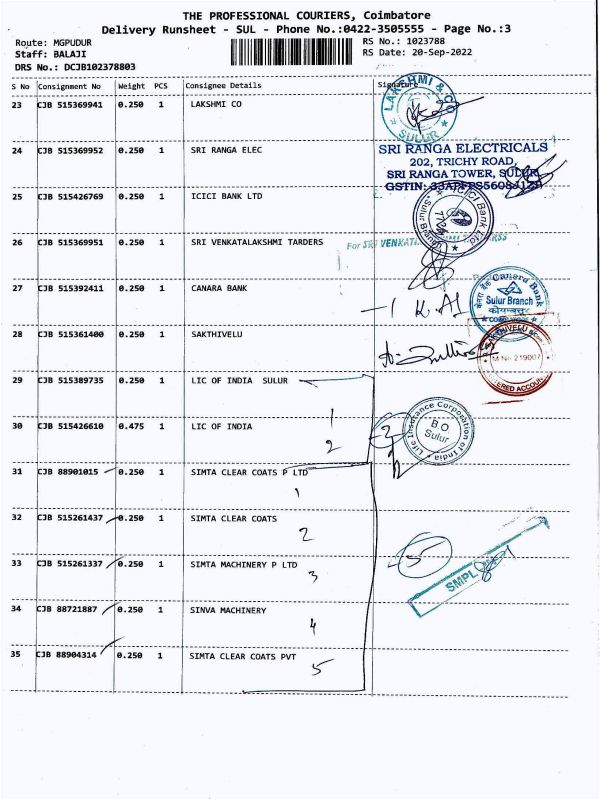 THE PROFESSIONAL COURIERS, Coimbatore
Delivery Runsheet - SUL - Phone No.:0422-3505555 - Page No.:3
Route: MGPUDUR
RS No.: 1023788
Staff: BALAJI
RS Date: 20-Sep-2022
DRS No.: DCJB102378803
S No Consignment No Weight PCS Consignee Details Signature
23 CJB 515369941 0.250 1 LAKSHMI CO
LAKSHMI & CO
SULUR
24 CJB 515369952 0.250 1 SRI RANGA ELEC
SRI RANGA ELECTRICALS
202, TRICHY ROAD,
SRI RANGA TOWER, SULUR
GSTIN:
25 CJB 515426769 0.250 1 ICICI BANK LTD
ICICI Bank Ltd
Sulur
26 CJB 515369951 0.250 1 SRI VENKATALAKSHMI TARDERS
For SRI
27 CJB 515392411 0.250 1 CANARA BANK
Canara Bank
Sulur Branch
28 CJB 515361400 0.250 1 SAKTHIVELU
M.No 219007
29 CJB 515389735 0.250 1 LIC OF INDIA SULUR
1
30 CJB 515426610 0.475 1 LIC OF INDIA
2
Life Insurance Corporation of India
B.O
Sulur
31 CJB 88901015 0.250 1 SIMTA CLEAR COATS P LTD
1
32 CJB 515261437 0.250 1 SIMTA CLEAR COATS
2
33 CJB 515261337 0.250 1 SIMTA MACHINERY P LTD
3
5
SMPL
34 CJB 88721887 0.250 1 SINVA MACHINERY
4
35 CJB 88904314 0.250 1 SIMTA CLEAR COATS PVT
5